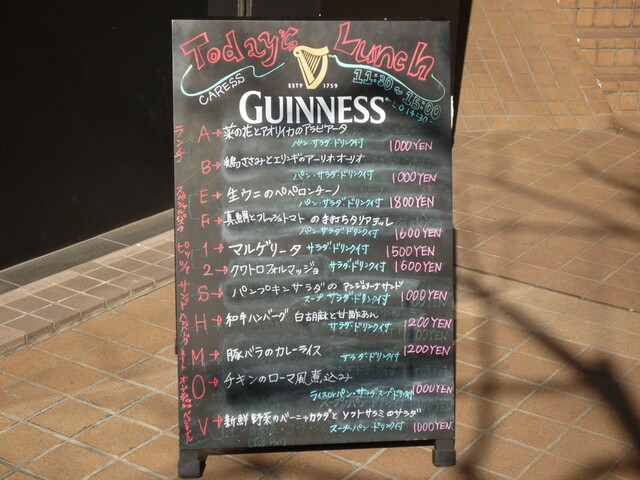 Today's Lunch
CARESS
11:30~15:00
L.O 14:30
ESTD 1759
GUINNESS
ランチ
A→菜の花とアオリイカのアラビアータ
パン・サラダ・ドリンク付 1000YEN
B→鶏ささみとエリンギのアーリオ・オーリオ
パン・サラダ・ドリンク付 1000YEN
スペシャルパスタ
E→生ウニのペペロンチーノ
パン・サラダ・ドリンク付 1800YEN
F→真鯛とフレッシュトマトの手打ちタリアテッレ
パン・サラダ・ドリンク付 1600YEN
ピッツァ
1→マルゲリータ サラダ・ドリンク付 1500YEN
2→クワトロフォルマッジョ サラダ・ドリンク付 1600YEN
サンド
S→パンプキンサラダの サンド
スープ・サラダ・ドリンク付 1000YEN
ハンバーグ
H→和牛ハンバーグ 白胡麻と甘酢あん
サラダ・ドリンク付 1200YEN
M→豚バラのカレーライス
サラダ・ドリンク付 1200YEN
O→チキンのローマ風煮込み
ライスorパン・サラダ・スープ・ドリンク付 1000YEN
V→新鮮野菜のバーニャカウダとソフトサラミのサラダ
スープ・パン・ドリンク付 1000YEN